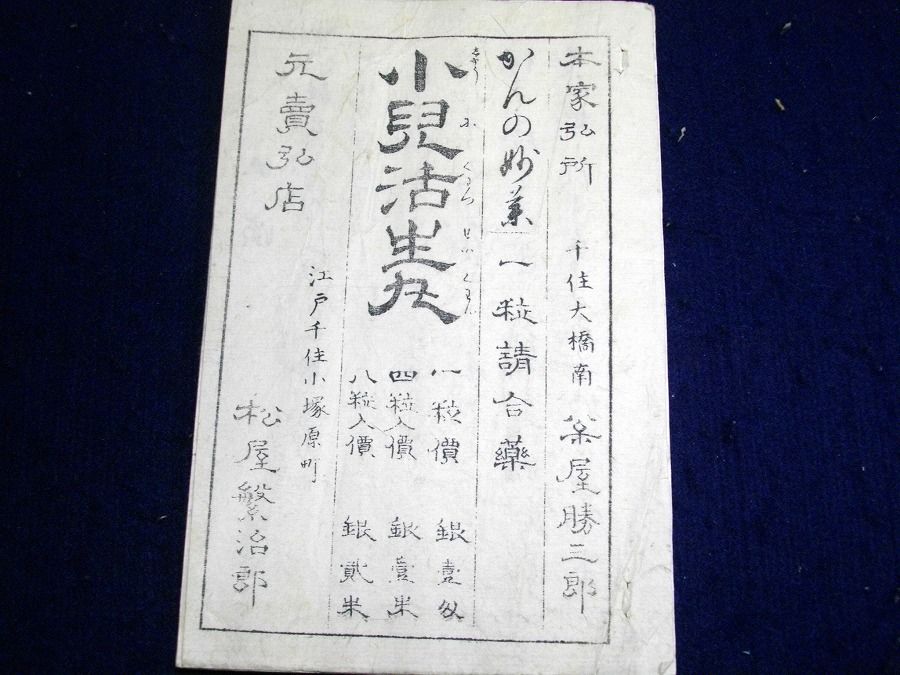 本家弘所 千住大橋南 薬屋勝三郎
かんの妙薬 一粒請合藥
小兒活生丸
一粒價 銀壹匁
四粒入價 銀壹朱
八粒入價 銀貳朱
江戸千住小塚原町
元賣弘店 松屋繁治郎